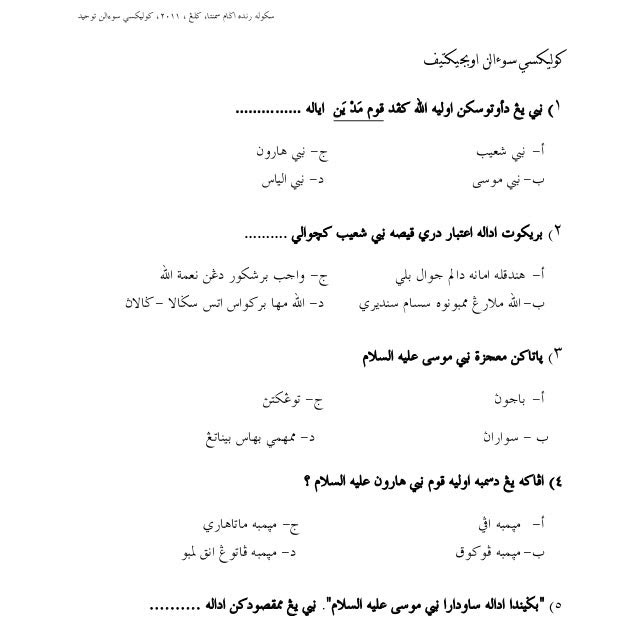 سكوله رنده اݢام سمنتا، كلڠ ، ٢٠١١، كوليكسي سوءالن توحيد
كوليكسي سوءالن اوبجيكتيف
١) نبي يڠ دأوتوسكن اوليه الله كڤد قوم مَدْ يَن اياله ...............
أ- نبي شعيب ج- نبي هارون
ب- نبي موسى د- نبي الياس
٢) بريكوت اداله اعتبار دري قيصه نبي شعيب كچوالي ..........
أ- هندقله امانه دالم جوال بلي ج- واجب برشكور دڠن نعمة الله
ب- الله ملارڠ ممبونوه سسام سنديري د- الله مها بركواس اتس سݢالا - ݢالان
٣) ڽاتاكن معجزة نبي موسى عليه السلام
أ- باجون ج- توڠكتن
ب - سواران د- ممهمي بهاس بيناتڠ
٤) اڤاكه يڠ دسمبه اوليه قوم نبي هارون عليه السلام ؟
أ- مڽمبه اڤي ج- مڽمبه ماتاهاري
ب- مڽمبه ڤوكوق د- مڽمبه ڤاتوڠ انق لمبو
٥) "بݢيندا اداله ساودارا نبي موسى عليه السلام". نبي يڠ ممقصودكن اداله ..........